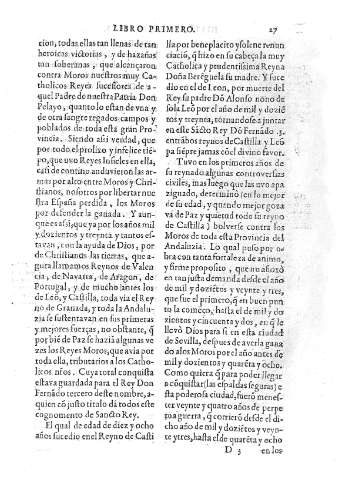 LIBRO PRIMERO.
27
cion, todas ellas tan llenas de tan
heroicas victorias, y de hazañas
tan soberanas, que alcançaron
contra Moros nuestros muy Ca-
tholicos Reyes sucessores de a-
quel Padre de nuestra Patria Don
Pelayo, quanto lo estan de vna y
de otra sangre regados campos y
poblados de toda esta gran Pro-
vincia. Siendo assi verdad, que
por todo el prolixo y infelice tiē-
po, que uvo Reyes Infieles en ella,
casi de continuo anduvieron las ar-
mas por alto entre Moros y Chri-
stianos, nosotros por libertar nue
stra España perdida, los Moros
por defender la ganada. Y aun-
que es assi, que ya por los años mil
y dozientos y treinta y tantos es-
tavan, con la ayuda de Dios, por
de Christianos las tierras, que a-
gora llamamos Reynos de Valen
cia, de Navarra, de Aragon, de
Portugal, y de mucho antes los
de Leō, y Castilla, toda via el Rey
no de Granada, y toda la Andalu-
zia se sustentavan en sus primeras
y mejores fuerças, no obstante, q̄
por biē de Paz se hazia algunas ve
zes los Reyes Moros, que avia por
toda ella, tributarios a los Catho-
licos nr̄os. Cuya total conquista
estava guardada para el Rey Don
Fernādo tercero deste nombre, a-
quien cō justo titulo dā todos este
cognomento de Sancto Rey.
El qual de edad de diez y ocho
años sucedio en el Reyno de Casti
lla por beneplacito y solene renun
ciaciō, q̄ hizo en su cabeça la muy
Catholica y prudentissima Reyna
Doña Berēguela su madre. Y suce
dio en el de Leon, por muerte del
Rey su padre Dō Alonso nono de
solo Leō por el año de mil y dozie-
tos y treynta, tornandose a juntar
en este Sācto Rey Dō Fernādo .3.
entrābos reynos de Castilla y Leō
pa siēpre jamas cō el divino favor.
Tuvo en los primeros años de
su reynado algunas controversias
civiles, mas luego que las uvo apa
ziguado, determinò (en lo mejor
de su edad, y quando mejor goza
vā de Paz y quietud todo su reyno
de Castilla) bolverse contra los
Moros de toda esta Provincia del
Andaluzia. Lo qual puso por o-
bra con tanta fortaleza de animo,
y firme proposito, que no afloxò
en tan justa demanda desde el año
de mil y doziētos y veynte y tres,
que fue el primero, q̄ en buen pun
to la començò, hasta el de mil y do
zientos y cincuenta y dos, en q̄ le
llevò Dios para si en esta ciudad
de Sevilla, despues de averla gana
do a los Moros por el año antes de
mil y doziētos y quarēta y ocho.
Como quiera q̄ para poder llegar
a cōquistar (las espaldas seguras) e
sta poderosa ciudad, fuerō menes-
ter veynte y quatro años de perpe
tua guerra, q̄ corriò desde el di-
cho año de mil y doziētos y veyn-
te y tres, hasta el de quarēta y ocho
D 3 en los